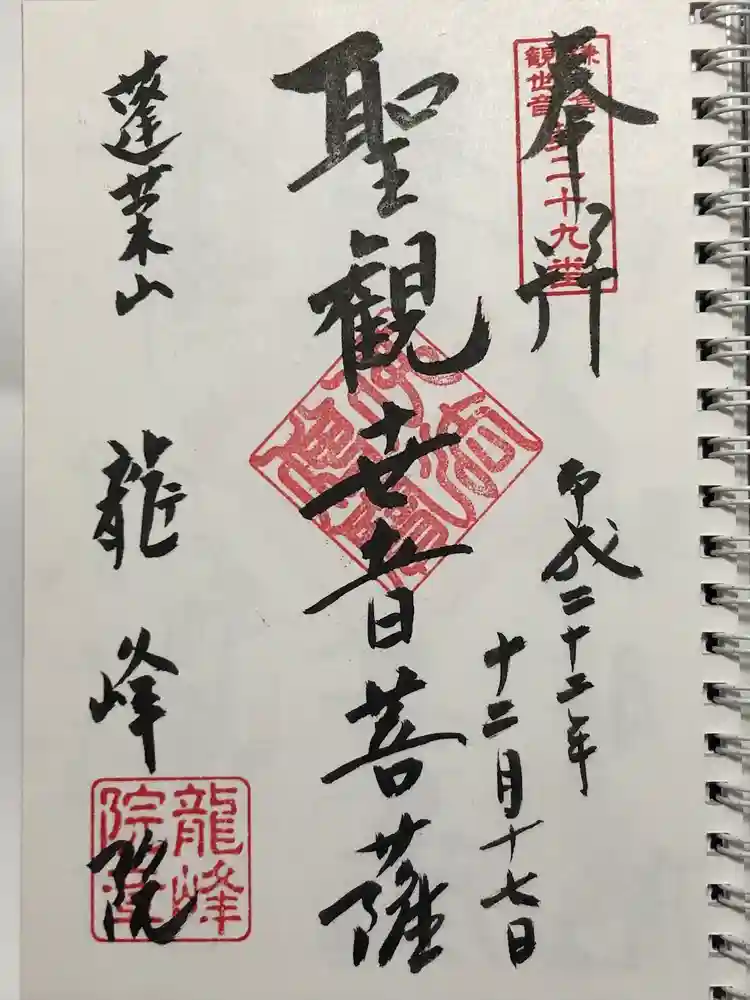 奉拝
鎌倉
観世音第二十九番
平成二十二年
十二月十七日
聖観世音菩薩
蓬莱山
龍峰院
龍峰
院章